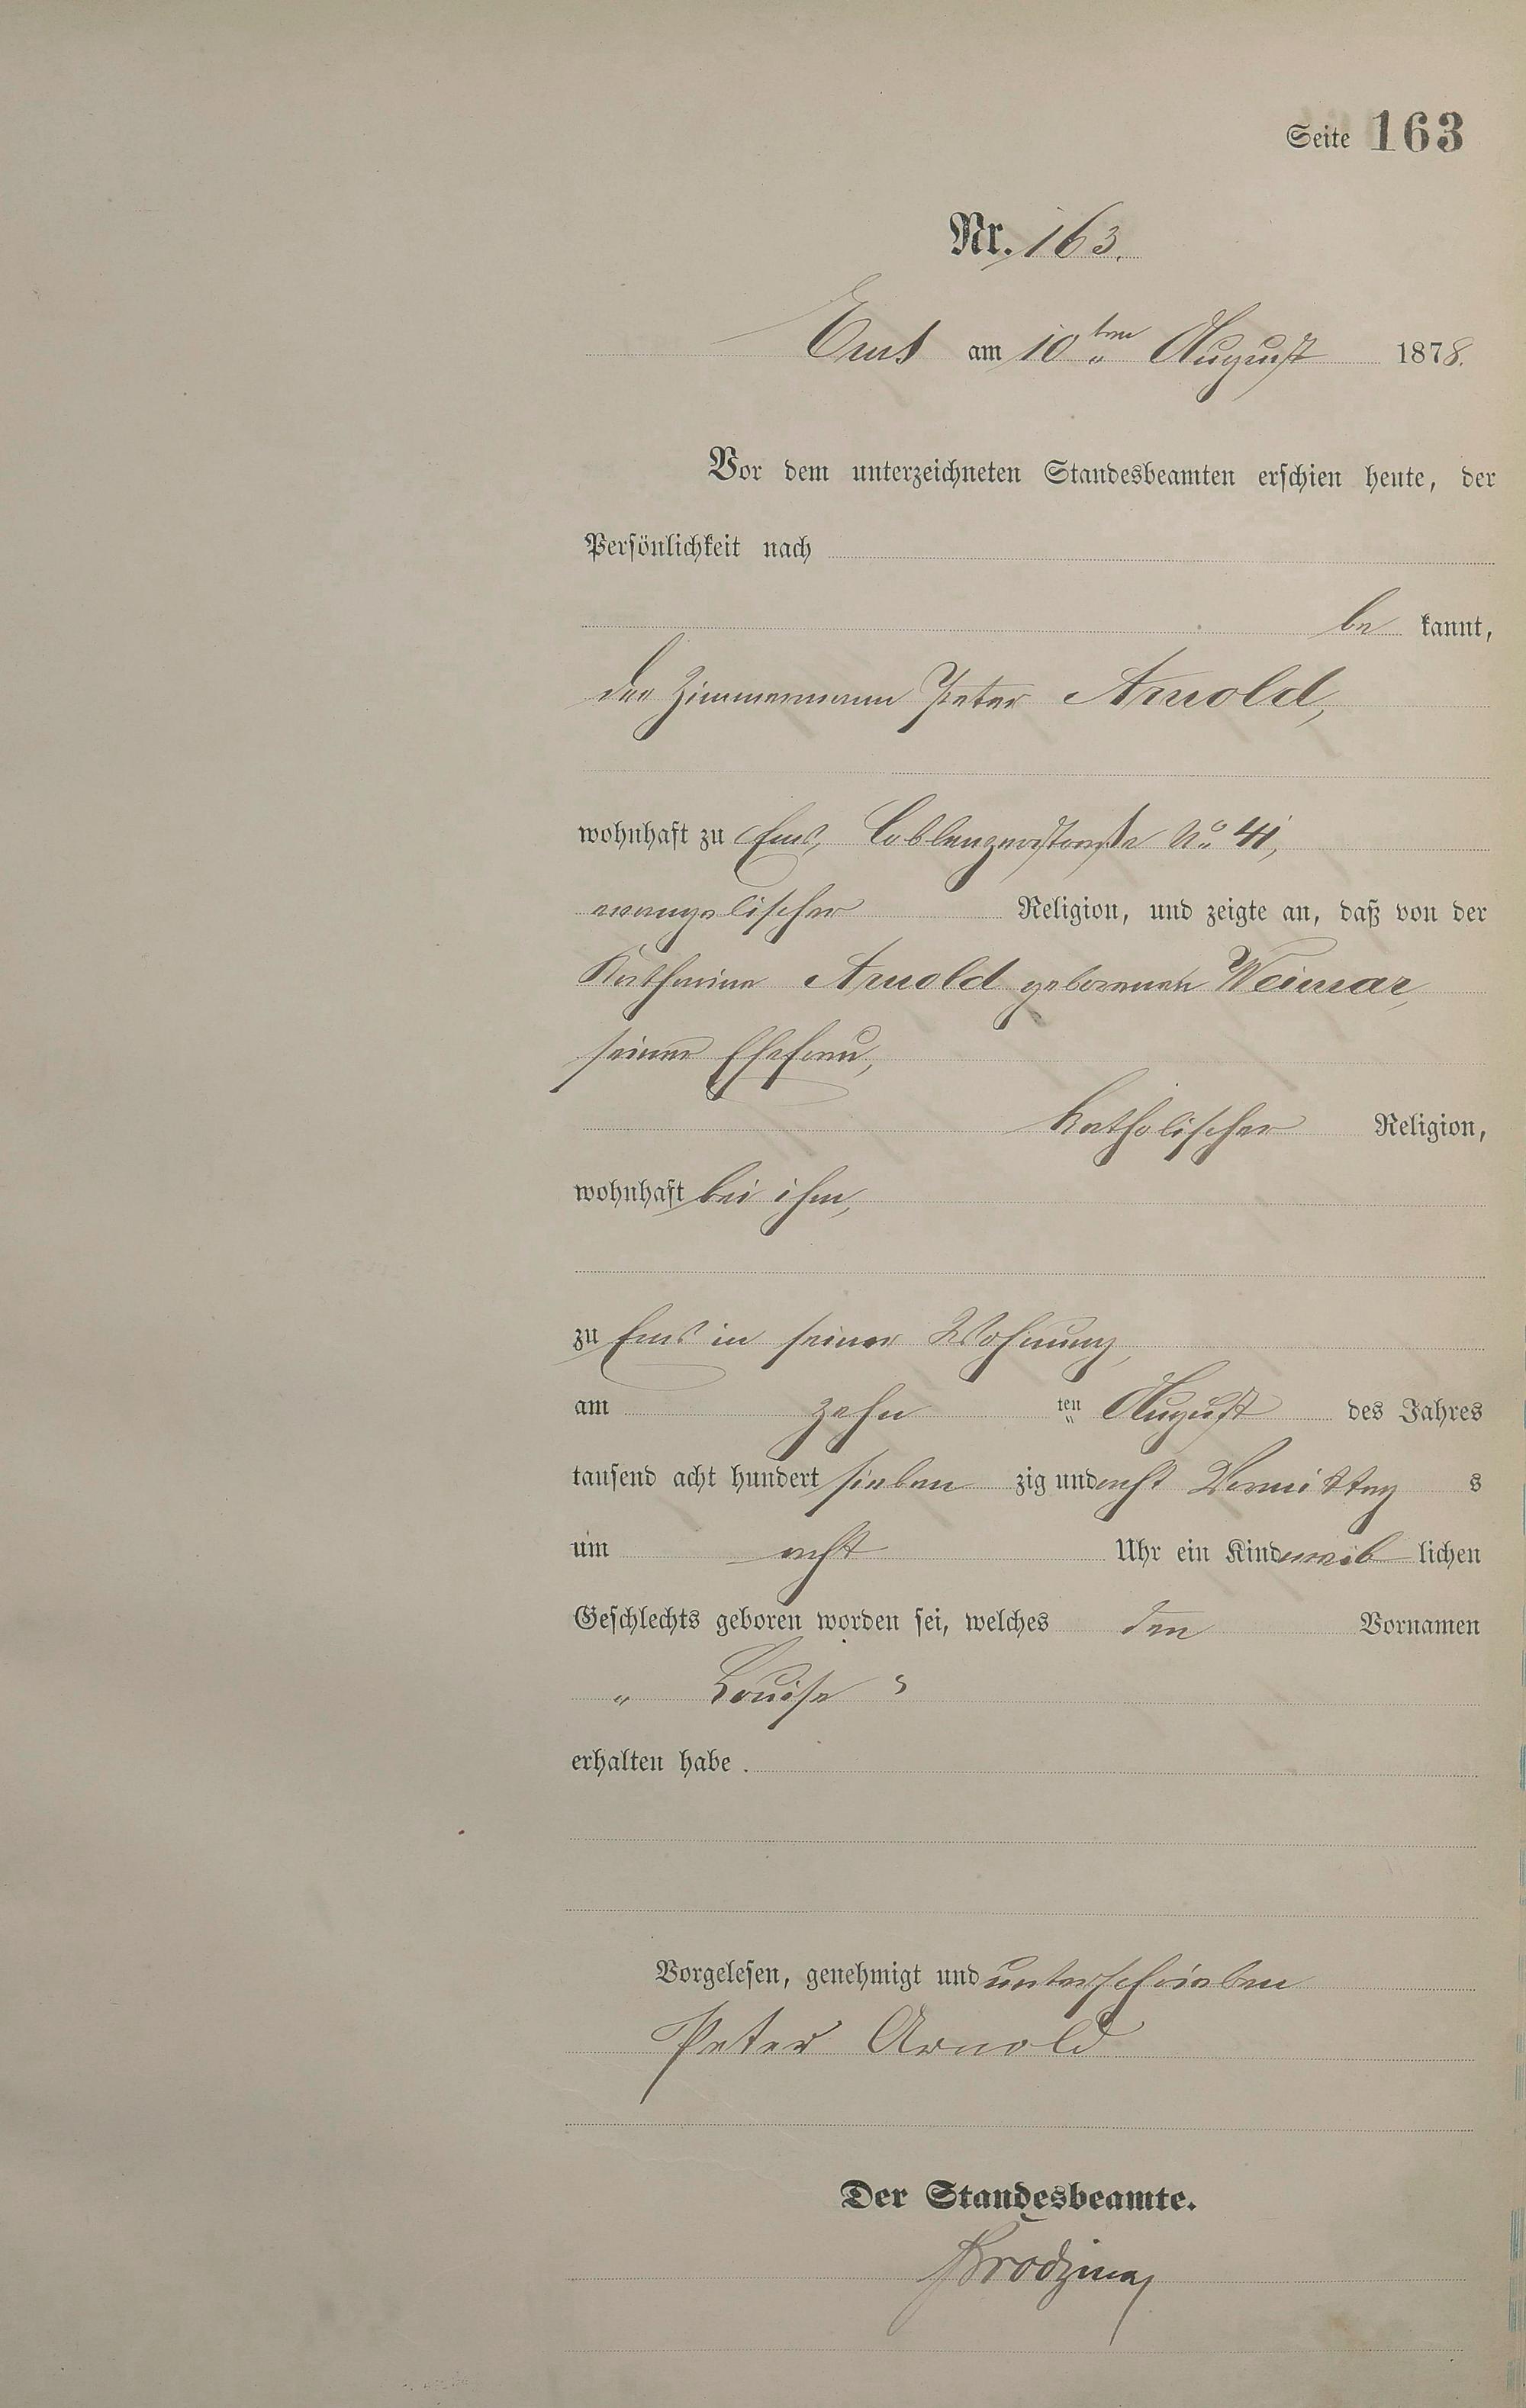 Seite 163
Nr. 163.
Ems am 10ten August 1878.
Vor dem unterzeichneten Standesbeamten erschien heute, der
Persönlichkeit nach
be kannt,
der Zimmermann Peter Arnold,
wohnhaft zu Ems, Coblenzerstraße No 41,
evangelischer Religion, und zeigte an, daß von der
Katharina Arnold geborenen Weimar,
seiner Ehefrau,
katholischer Religion,
wohnhaft bei ihm,
zu Ems in seiner Wohnung,
am zehn ten August des Jahres
tausend acht hundert sieben zig und acht Vormittag s
um acht Uhr ein Kind weib lichen
Geschlechts geboren worden sei, welches den Vornamen
" Louise "
erhalten habe.
Vorgelesen, genehmigt und unterschrieben
Peter Arnold
Der Standesbeamte.